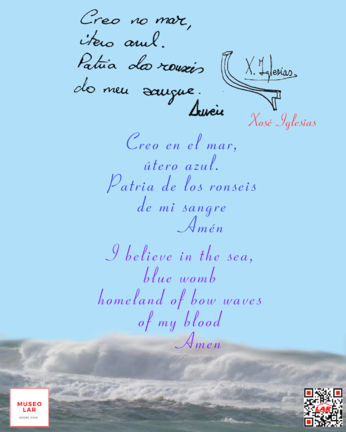 Creo no mar,
útero azul.
Patria dos ronseis
do meu sangue.
Amén
X. Iglesias
Xosé Iglesias
Creo en el mar,
útero azul.
Patria de los ronseis
de mi sangre
Amén
I believe in the sea,
blue womb
homeland of bow waves
of my blood
Amen
MUSEO
LAB